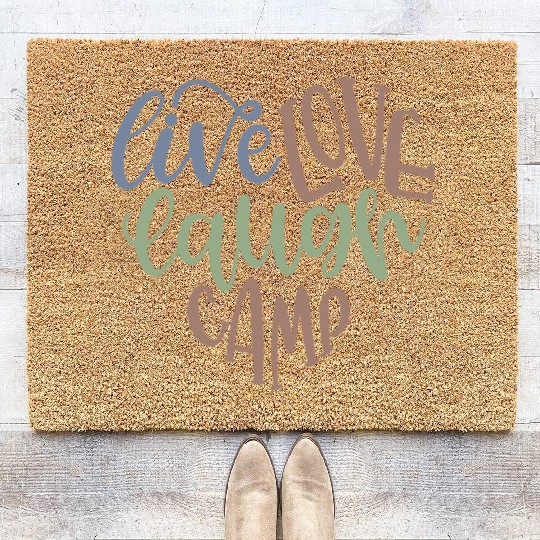 live LOVE
laugh
CAMP